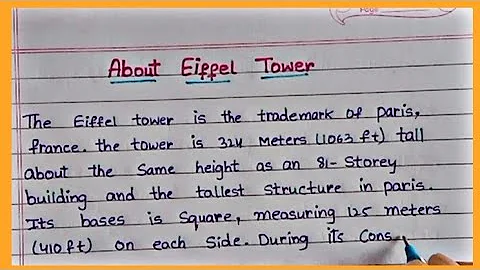 Page
About Eiffel Tower
The Eiffel tower is the trademark of paris,
france. the tower is 324 Meters (1063 ft) tall
about the same height as an 81- Storey
building and the tallest structure in paris.
Its bases is square, measuring 125 meters
(410 ft) on each side. During its Cons